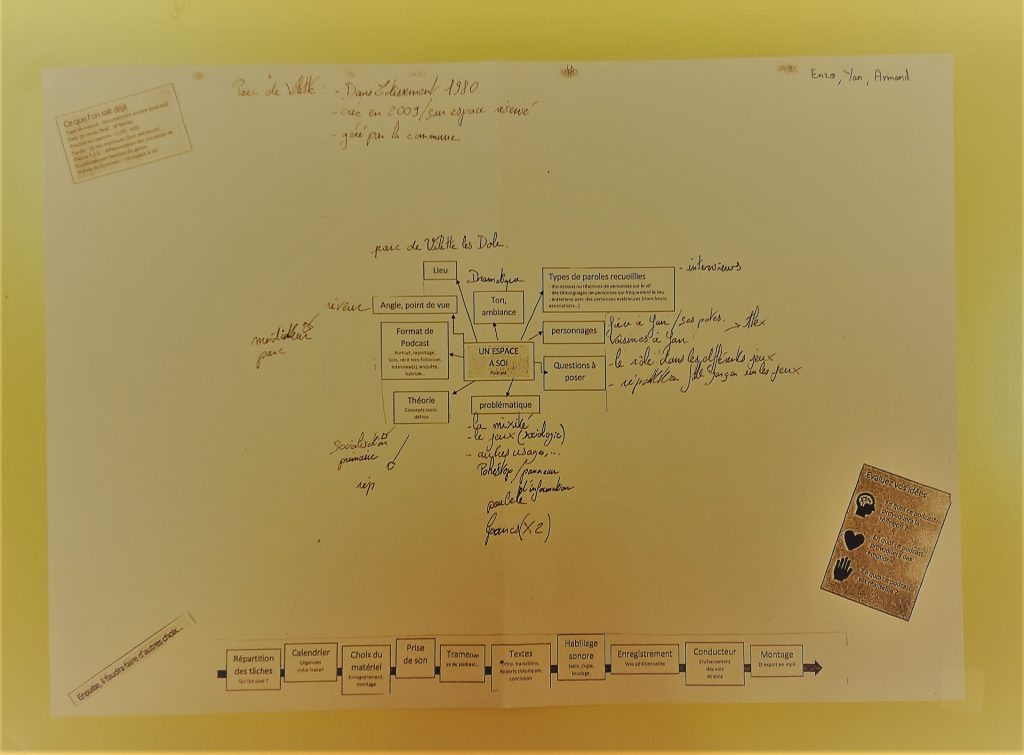 Enzo, Yan, Armand
Parc de Vilette : - Dans Lotissement 1980
- crée en 2009/sur espace réservé
- géré par la commune
Ce que l'on sait déjà
parc de Vilette les Dole.
Lieu
Dramatique
Types de paroles recueillies
- interviews
- discussions ou réactions de personnes sur le vif
- des témoignages de personnes qui fréquentent le lieu
- entretiens avec des personnes extérieures (chercheurs,
associations...)
Angle, point de vue
Ton,
ambiance
parc
Format de
Podcast
Portrait, reportage,
Solo, récit non-fictionnel,
Interview(s), enquête,
hybride...
personnages
à Yan / ses potes.
Voisines à Yan
UN ESPACE
A SOI
Podcast
Questions à
poser
- le rôle dans les différents jeux
- fille garçon sur les jeux
Théorie
Concepts socio
définis
problématique
- la mixité
- le jeux (sociologie)
- autres usages,...
Pokéstop / panneau
d'information
poubelle
bancs (X2)
socialisation
primaire
Evaluez vos idées
En quoi ce podcast
provoquera des
émotions
En quoi ce podcast
est réalisable ?
Ensuite, il faudra faire d'autres choix...
Répartition
des tâches
Qui fait quoi ?
Calendrier
Organisez
votre travail
Choix du
matériel
Enregistrement,
montage
Prise
de son
Trame
du podcast...
Textes
Intro, transitions,
Apports théoriques,
conclusion
Habillage
sonore
jingle,
bruitage,
Enregistrement
Voix additionnelles
Conducteur
Enchainement
des voix
et sons
Montage
Et export en mp3